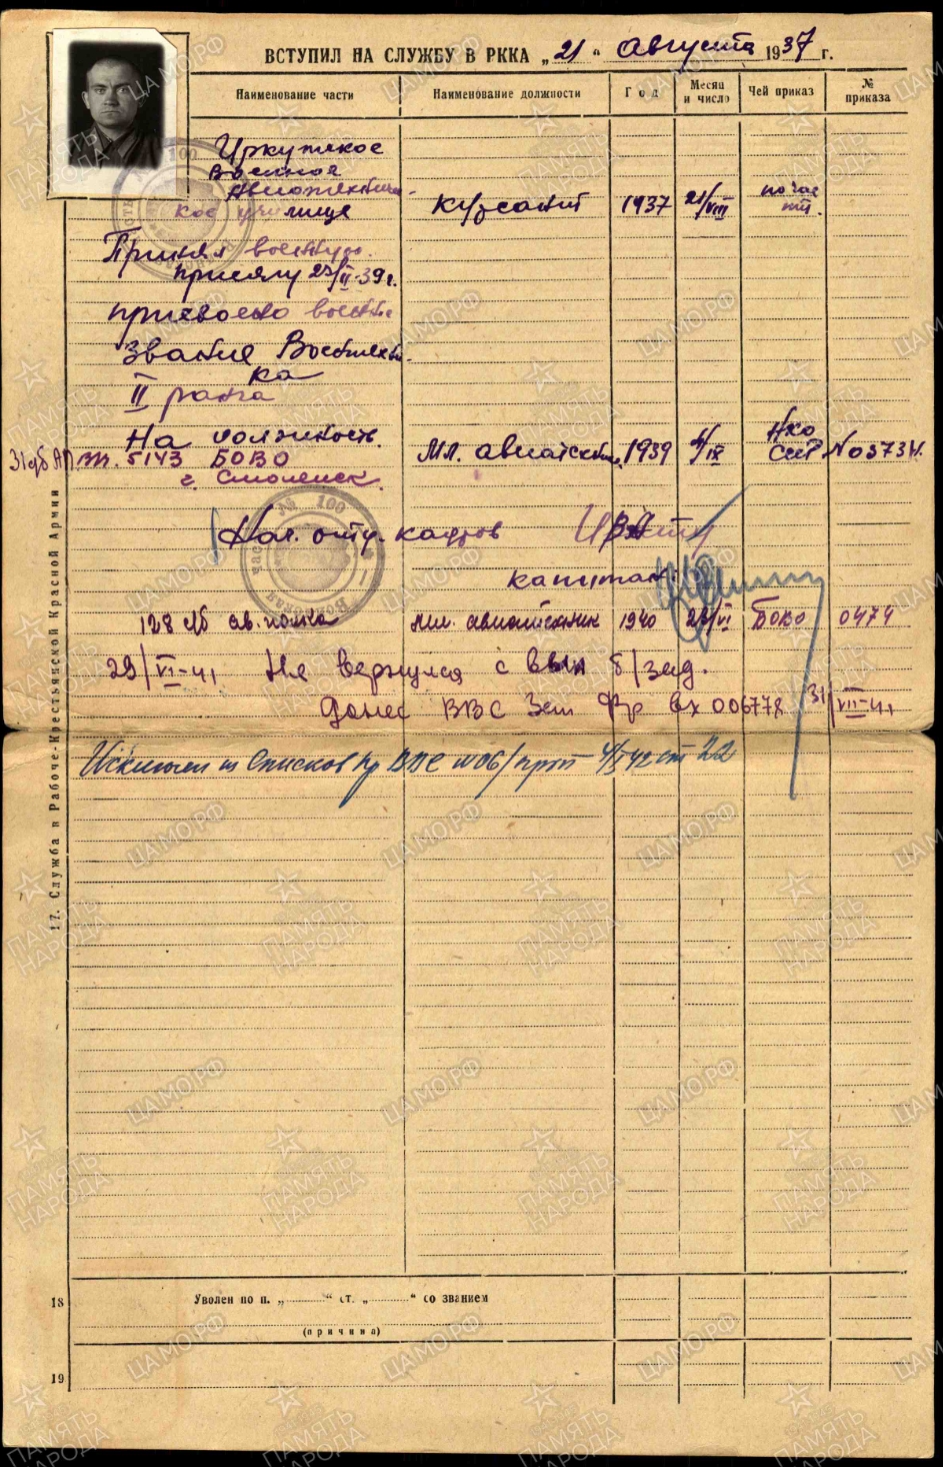 ВСТУПИЛ НА СЛУЖБУ В РККА „21“ августа 1937 г.
Наименование части Наименование должности Год Месяц и число Чей приказ № приказа
Иркутское
Военное
Авиатехничес-
кое училище курсант 1937 21/VIII по час
Принял военную
присягу 23/II-39 г.
присвоено военное
звание Воентехни-
ка
II ранга
На должность
31 сб АП в.ч. 5143 БОВО Мл. авиатехник 1939 4/IX НКО СССР № 03734.
г. Смоленск.
Нач. отд. кадров
капитан
128 сб ав. полка мл. авиатехник 1940 БОВО 0474
29/VI-41 Не вернулся с вып б/зад.
Донес ВВС Зап Фр вх 006778 31/VII-41
Исключен из Списков пр ВВС
17. Служба в Рабоче-Крестьянской Красной Армии
18 Уволен по п. „ “ ст. „ “ со званием
(причина)
19
ЦАМО.РФ
ПАМЯТЬ НАРОДА